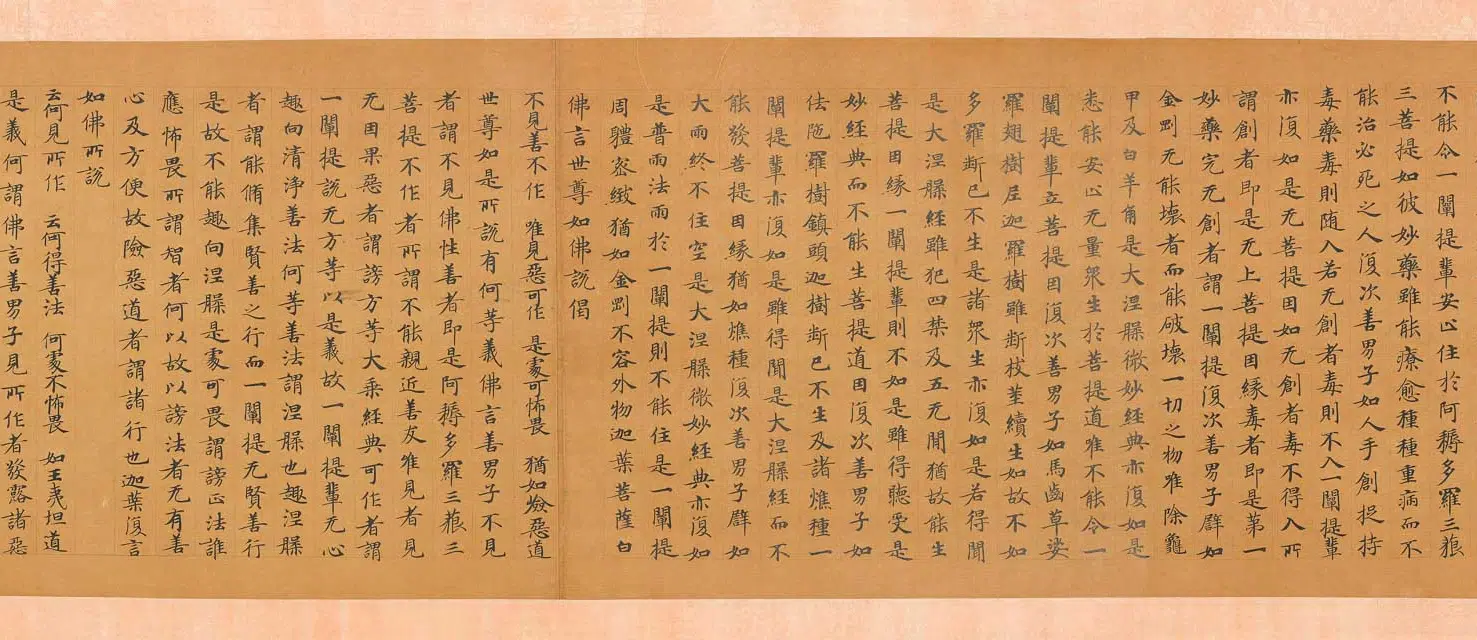 不能令一闡提輩安止住於阿耨多羅三藐
三菩提如彼妙藥雖能療愈種種重病而不
能治必死之人復次善男子如人手創捉持
毒藥毒則随入若无創者毒則不入一闡提輩
亦復如是无菩提因如无創者毒不得入所
謂創者即是无上菩提因緣毒者即是第一
妙藥完无創者謂一闡提復次善男子譬如
金剛无能壞者而能破壞一切之物唯除龜
甲及白羊角是大涅槃微妙經典亦復如是
悉能安止无量衆生於菩提道唯不能令一
闡提輩立菩提因復次善男子如馬齒草娑
羅翅樹尼迦羅樹雖斷枝莖續生如故不如
多羅斷已不生是諸衆生亦復如是若得聞
是大涅槃經雖犯四禁及五无間猶故能生
菩提因緣一闡提輩則不如是雖得聽受是
妙經典而不能生菩提道因復次善男子如
佉陁羅樹鎮頭迦樹斷已不生及諸燋種一
闡提輩亦復如是雖得聞是大涅槃經而不
能發菩提因緣猶如燋種復次善男子譬如
大雨終不住空是大涅槃微妙經典亦復如
是普雨法雨於一闡提則不能住是一闡提
周體密緻猶如金剛不容外物迦葉菩薩白
佛言世尊如佛說偈
不見善不作 唯見惡可作 是處可怖畏 猶如險惡道
世尊如是所說有何等義佛言善男子不見
者謂不見佛性善者即是阿耨多羅三藐三
菩提不作者所謂不能親近善友唯見者見
无因果惡者謂謗方等大乘經典可作者謂
一闡提說无方等以是義故一闡提輩无心
趣向清淨善法何等善法謂涅槃也趣涅槃
者謂能脩集賢善之行而一闡提无賢善行
是故不能趣向涅槃是處可畏謂謗正法誰
應怖畏所謂智者何以故以謗法者无有善
心及方便故險惡道者謂諸行也迦葉復言
如佛所說
云何見所作 云何得善法 何處不怖畏 如王夷坦道
是義何謂佛言善男子見所作者發露諸惡